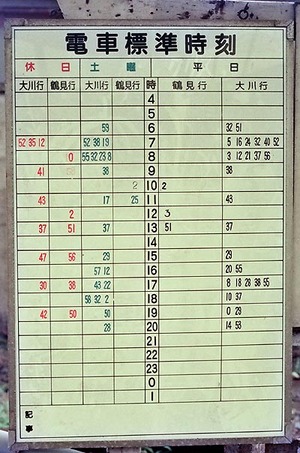 電車標準時刻
休日 土曜 時 平日
大川行 鶴見行 大川行 鶴見行 鶴見行 大川行
4
5
59 6 32 51
52 35 12 52 38 19 7 5 16 24 32 40 52
0 55 32 23 8 8 3 12 21 37 56
41 38 9 38
2 10 2
43 17 25 11 43
2 12 3
37 51 37 13 51 37
14
47 56 29 15 29
57 12 16 20 55
30 38 43 22 17 8 18 28 38 55
58 32 2 18 10 37
42 50 50 19 0 28
28 20 14 53
21
22
23
0
1
記事